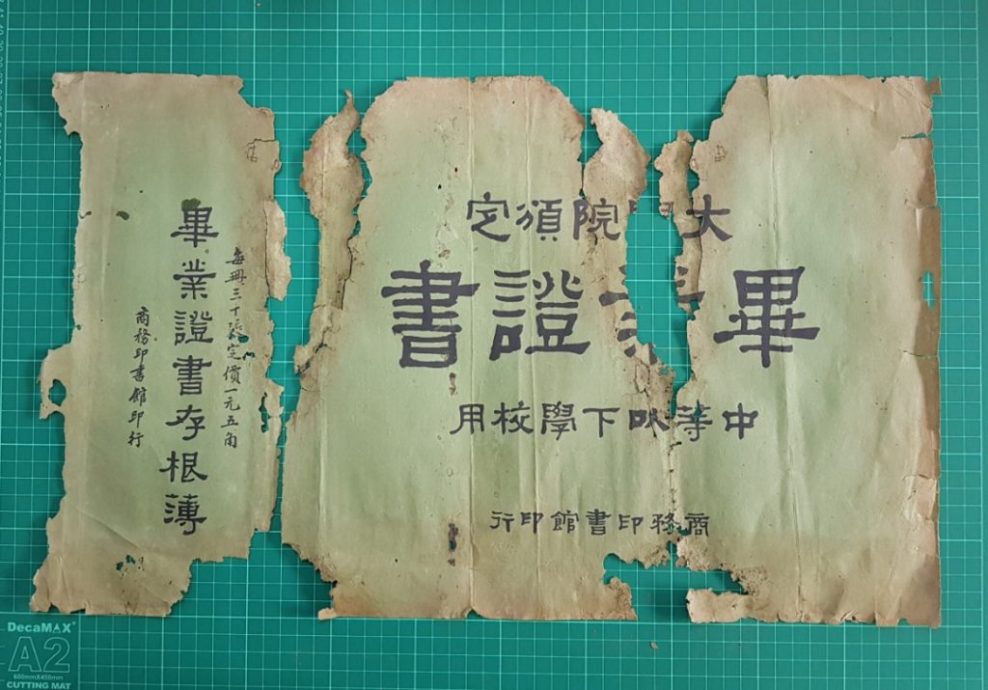 大學院頒定
畢業證書
中等㕥下學校用
商務印書館印行
每冊三十張定價一元五角
畢業證書存根薄
商務印書館印行
DecaMAX
A2
600mmX450mm
CUTTING MAT